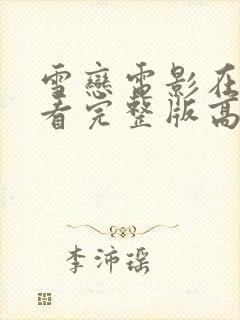 雪戀電影在
看完整版高
李沛瑶